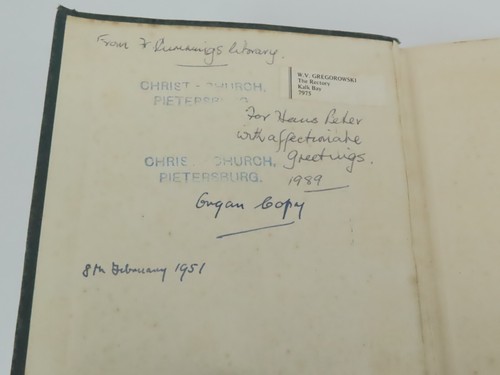 From Fr Rummings library.
CHRIST - CHURCH,
PIETERSBURG.
W.V. GREGOROWSKI
The Rectory
Kalk Bay
7975
For Hans Peter
with affectionate
greetings.
1989
CHRIST CHURCH,
PIETERSBURG.
Organ Copy
8th February 1951